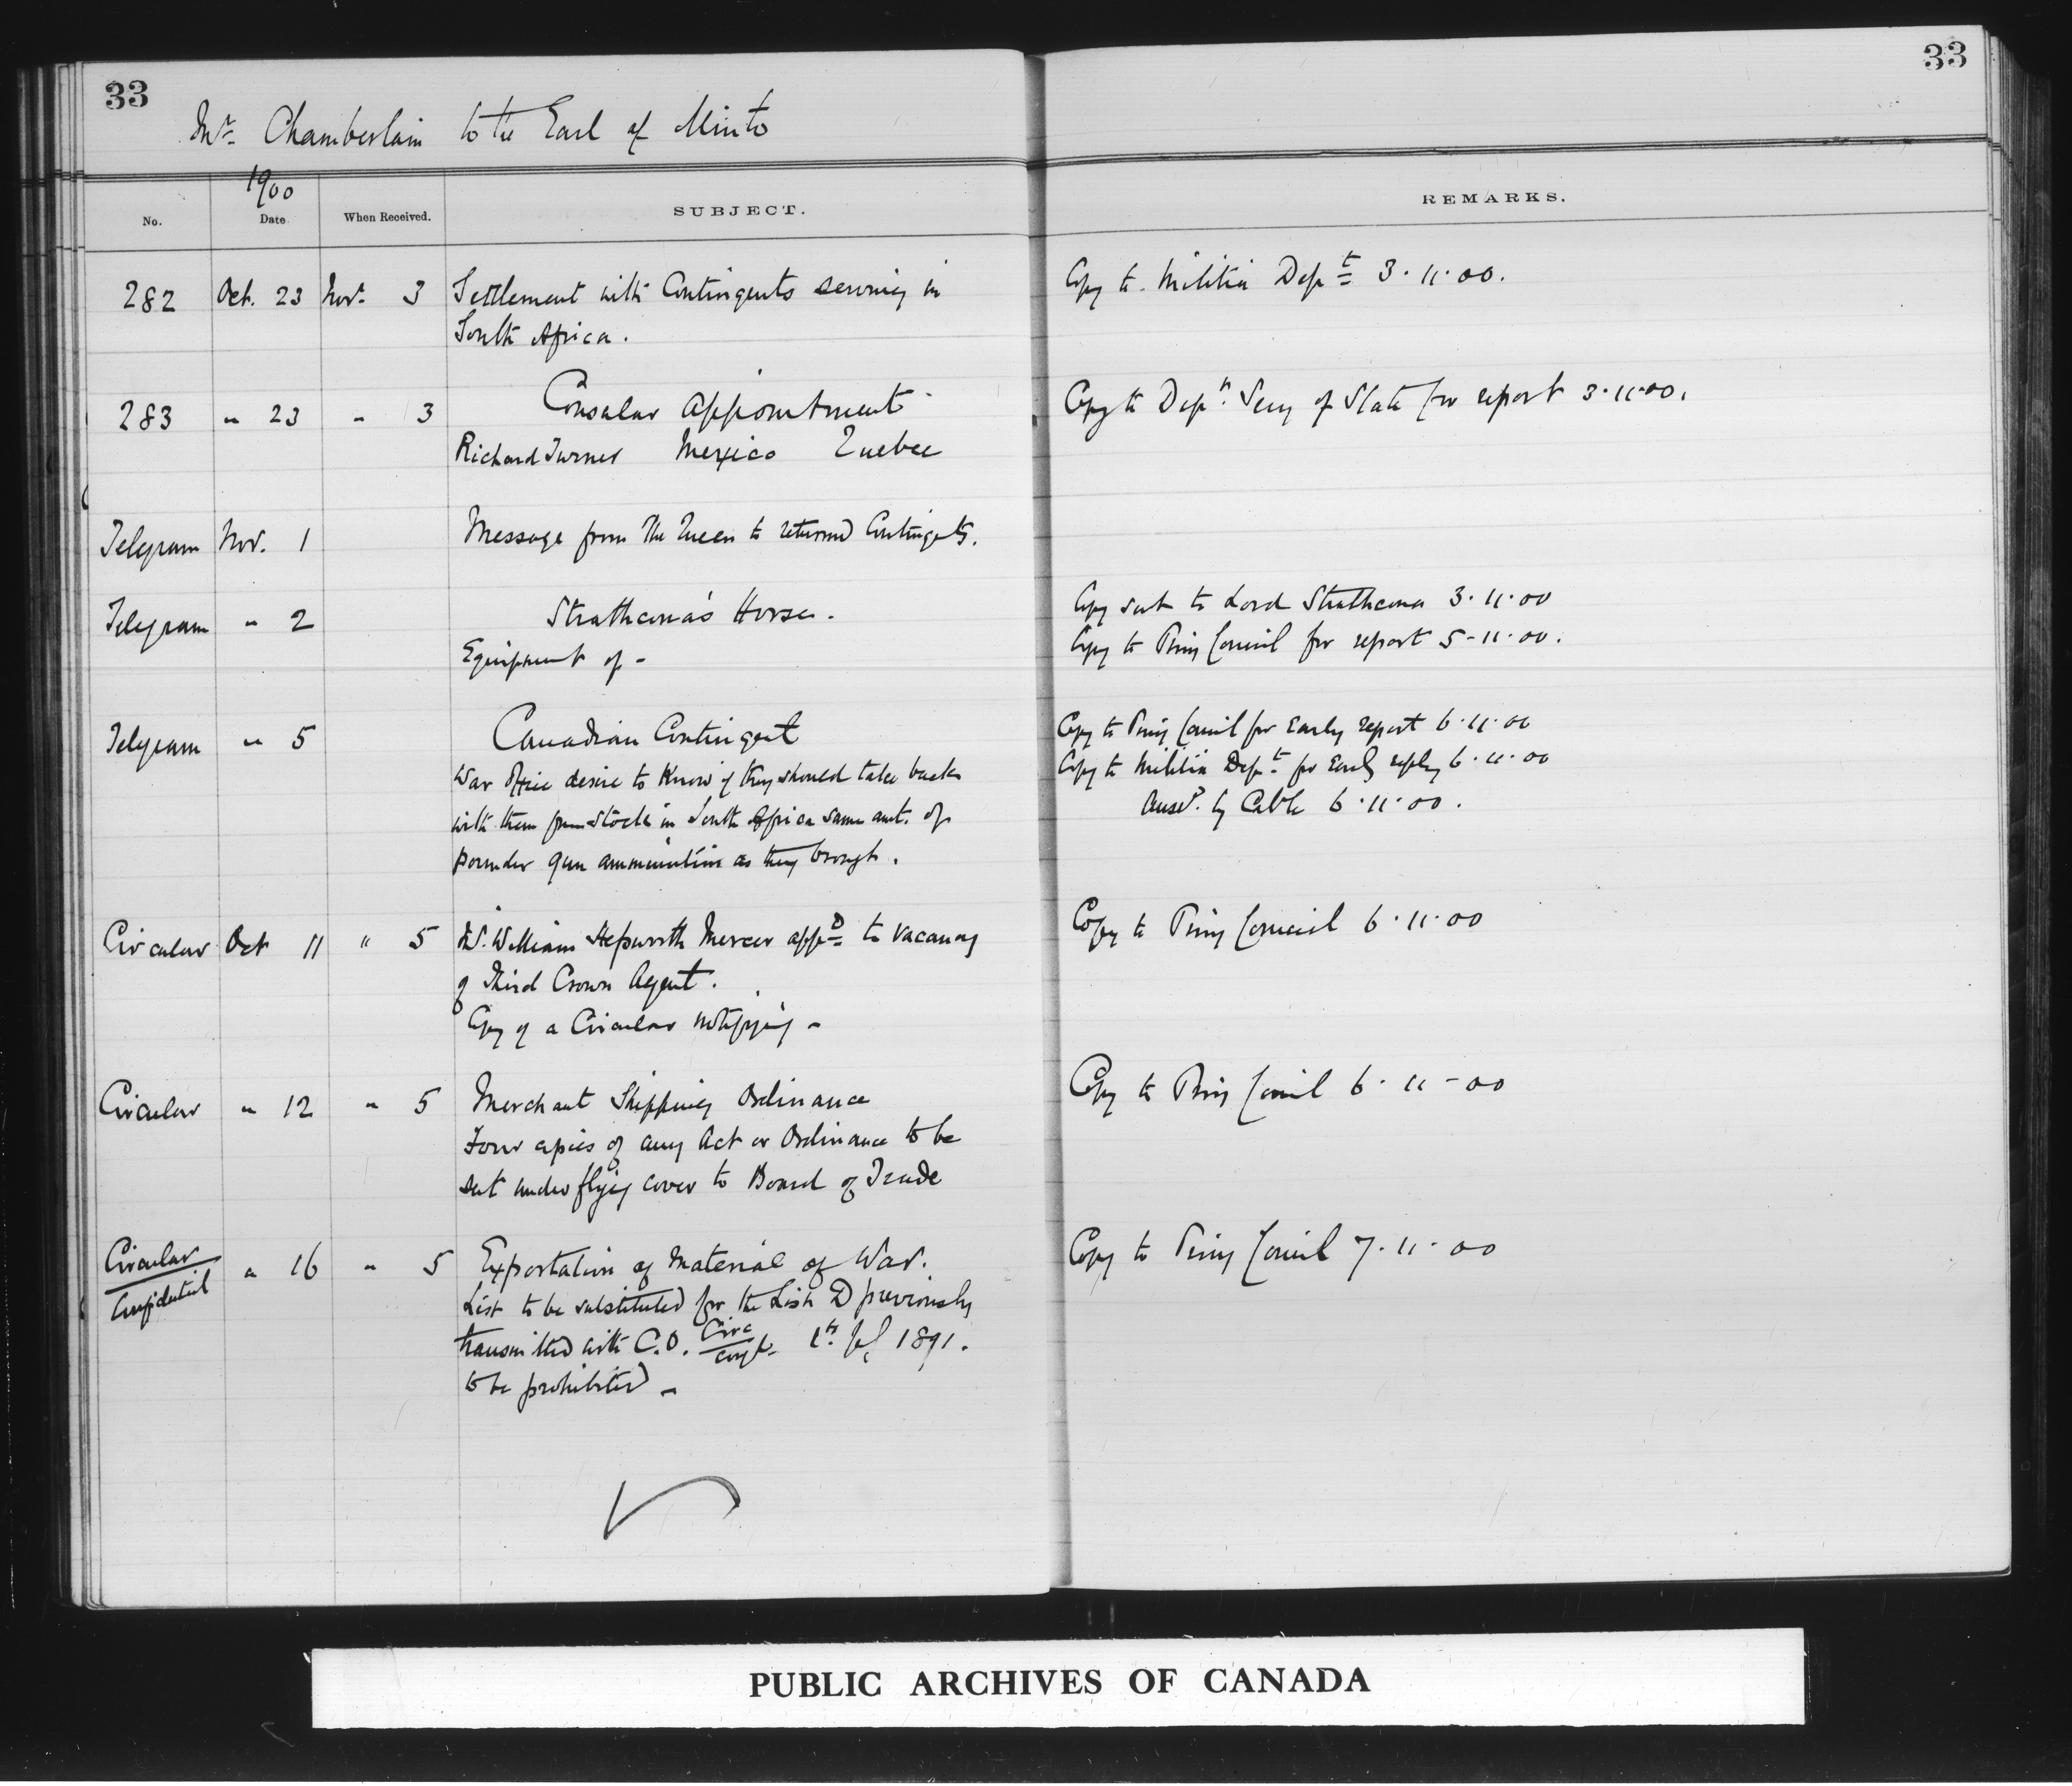 33
33
Mr. Chamberlain to the Earl of Minto
1900
No. Date When Received. SUBJECT. REMARKS.
282 Oct. 23 Nov. 3 Settlement with Contingents serving in Copy to Militia Dept 3.11.00.
South Africa.
283 " 23 " 3 Consular Appointment Copy to Depy. Secy of State for report 3.11.00.
Richard Turner Mexico Quebec
Telegram Nov. 1 Message from The Queen to returned Contingents.
Telegram " 2 Strathcona's Horse. Copy sent to Lord Strathcona 3.11.00
Equipment of - Copy to Privy Council for report 5-11.00.
Telegram " 5 Canadian Contingent Copy to Privy Council for Early report 6.11.00
War Office desire to know if they should take back Copy to Militia Dept. for Early reply 6.11.00
with them from stock in South Africa same amt. of Ansd. by Cable 6.11.00.
pounder gun ammunition as they brought.
Circular Oct 11 " 5 William Hepworth Mercer appd to vacancy Copy to Privy Council 6.11.00
of Third Crown Agent.
Copy of a Circular notifying -
Circular " 12 " 5 Merchant Shipping Ordinance Copy to Privy Council 6.11-00
Four copies of any Act or Ordinance to be
sent under flying cover to Board of Trade
Circular " 16 " 5 Exportation of Material of War. Copy to Privy Council 7.11.00
Confidential
List to be substituted for the List D previously
transmitted with C.O. Circ Conf. 1891.
to be prohibited -
PUBLIC ARCHIVES OF CANADA